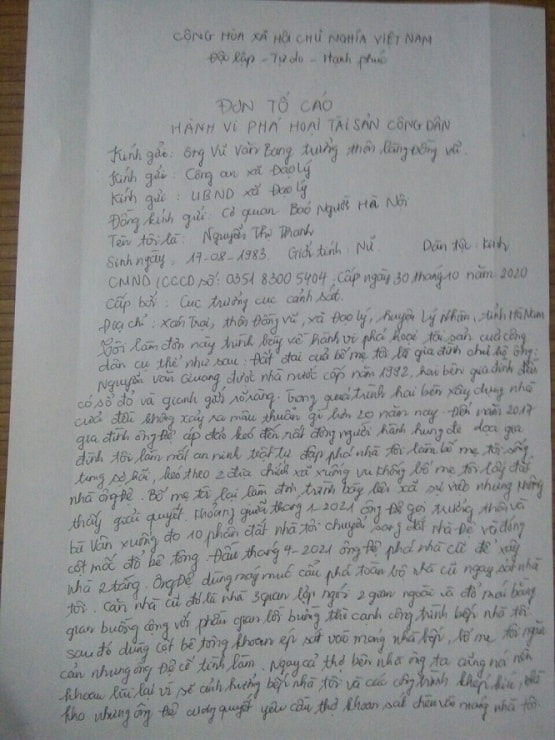 CỘNG HÒA XÃ HỘI CHỦ NGHĨA VIỆT NAM
Độc lập - Tự do - Hạnh phúc
ĐƠN TỐ CÁO
HÀNH VI PHÁ HOẠI TÀI SẢN CÔNG DÂN
Kính gửi: Ông Vũ Văn Bang trưởng thôn làng Đồng vũ.
Kính gửi: Công an xã Đạo Lý
Kính gửi: UBND xã Đạo Lý
Đồng kính gửi: Cơ quan Báo Người Hà Nội
Tên tôi là: Nguyễn Thị Thanh
Sinh ngày: 17-08-1983. Giới tính: Nữ Dân tộc: Kinh
CMND/CCCD số: 0351 8300 5404, Cấp ngày 30 tháng 10 năm 2020
Cấp bởi: Cục trưởng cục cảnh sát.
Địa chỉ: Xóm Trại, thôn Đồng vũ, xã Đạo lý, huyện Lý Nhân, tỉnh Hà Nam
Tôi làm đơn này trình bày về hành vi phá hoại tài sản của công
dân cụ thể như sau: Đất đai của bố mẹ tôi là gia đình chủ hộ ông:
Nguyễn Văn Quang được nhà nước cấp năm 1992, hai bên gia đình đều
có sổ đỏ và gianh giới rõ ràng. Trong quá trình hai bên xây dựng nhà
cửa đều không xảy ra mâu thuẫn gì hơn 20 năm nay. Đến năm 2017
gia đình ông Đề kéo đến rất đông người hành hung đe dọa gia
đình tôi làm mất an ninh trật tự đập phá nhà tôi làm bố mẹ tôi sống
trong sợ hãi, kéo theo 2 địa chính xã xuống vu khống bố mẹ tôi lấy đất
nhà ông Đề. Bố mẹ tôi lại làm đơn trình bày lên xã sự việc nhưng không
thấy giải quyết. Khoảng giữa tháng 1-2021 ông Đề gọi trưởng thôn và
bà Vân xuống đo 10 phân đất nhà tôi chuyển sang đất nhà Đề và đóng
cột mốc đổ bê tông. Đầu tháng 4-2021 ông Đề phá nhà cũ để xây
nhà 2 tầng. Ông Đề dùng máy múc cẩu phá toàn bộ nhà cũ ngay sát nhà
tôi. Căn nhà cũ đó là nhà 3 gian lợp ngói 2 gian ngoài và đổ mái bằng
gian buồng cộng với phần gian lồi buồng thì cạnh công trình bếp nhà tôi
sau đó dùng cột bê tông khoan ép sát vào móng nhà bếp, bố mẹ tôi ngăn
cản nhưng ông Đề cố tình làm. Ngay cả thợ bên nhà ông ta cũng nói nên
khoan lùi lại vì sẽ ảnh hưởng bếp nhà tôi và các công trình khép kín, nhà
kho nhưng ông Đề cương quyết yêu cầu thợ khoan sát chân móng nhà tôi.